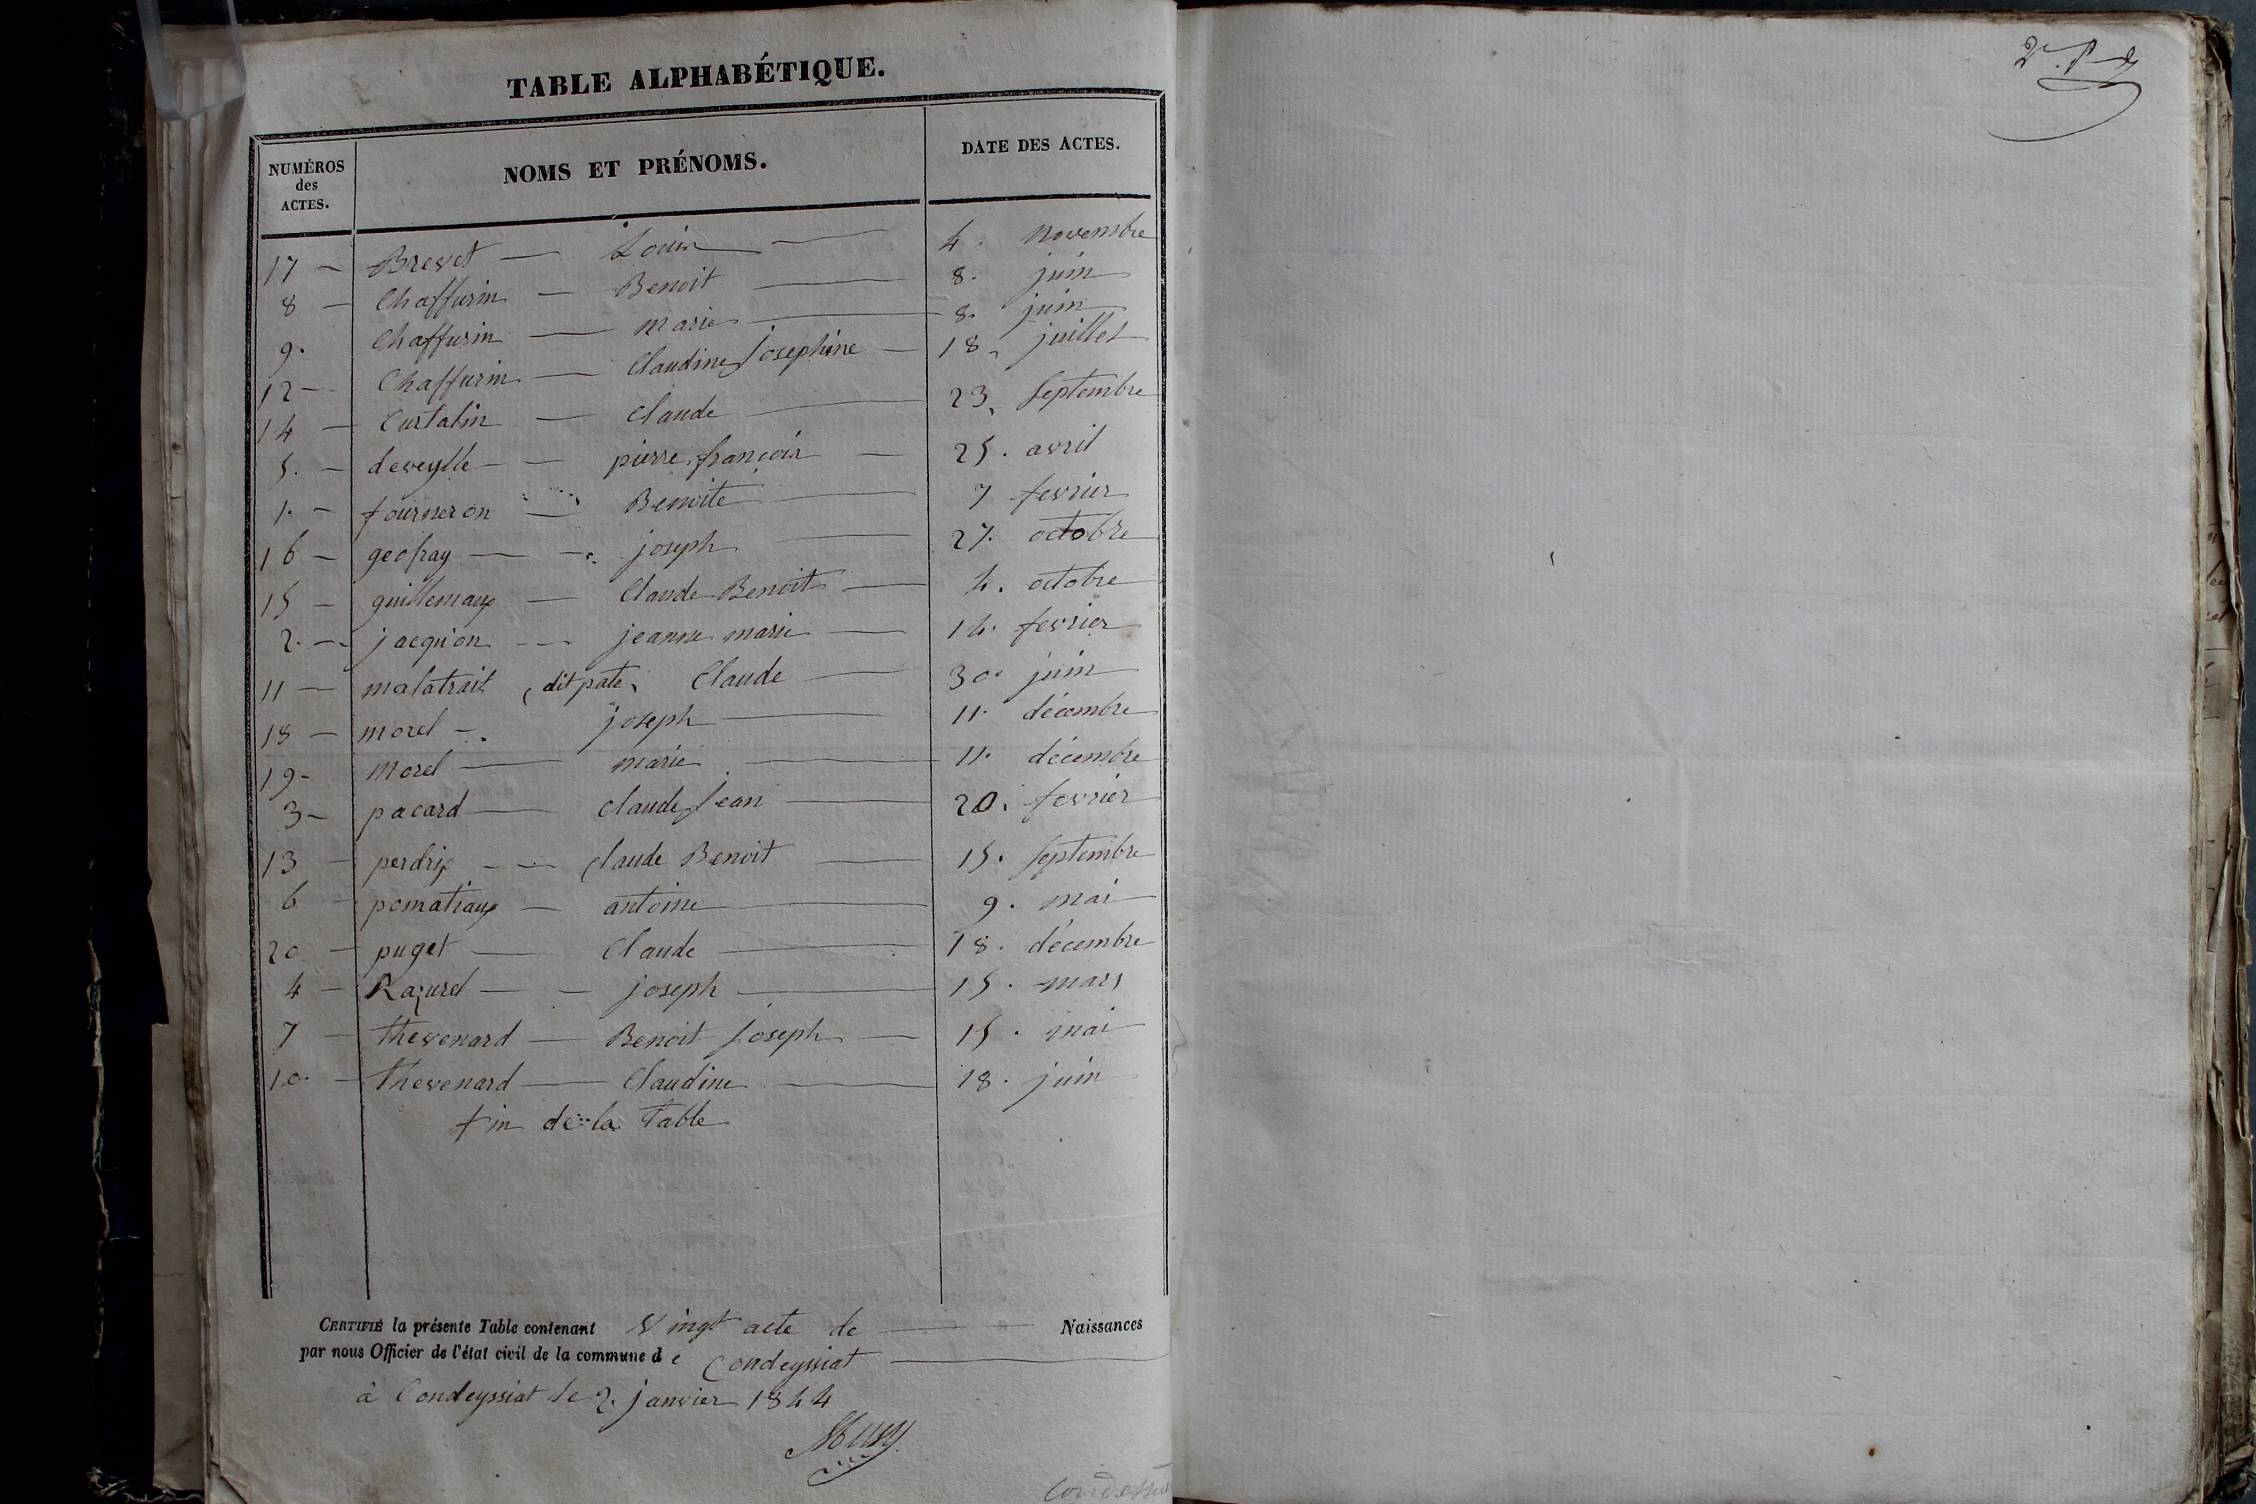 TABLE ALPHABÉTIQUE.
NUMÉROS des ACTES. NOMS ET PRÉNOMS. DATE DES ACTES.
17 — Brevet — Louis — 4. novembre
8 — Chaffurin — Benoit — 8. juin
9. Chaffurin — marie — 8. juin
12 — Chaffurin — Claudine Josephine — 18, juillet
14 — Curtalin — Claude — 23, Septembre
5. — deveylle — pierre françois — 25. avril
1. — fourneron — Benoite — 7 fevrier
16 — geofray — joseph — 27. octobre
15 — guillemaux — Claude Benoit — 4. octobre
2. — jacquion — jeanne marie — 14. fevrier
11 — malatrait (dit pate, Claude — 30. juin
18 — morel — joseph — 11. décembre
19 — Morel — marie — 11. décembre
3 — pacard — Claude Jean — 20. fevrier
13 — perdrix — Claude Benoit — 15. Septembre
6 — pomatiaux — antoine — 9. mai
20 — puget — Claude — 18. décembre
4 — Razurel — joseph — 15. mars
7 — thevenard — Benoit Joseph — 15. mai
10. — thevenard — Claudine — 18. juin
fin de la Table
CERTIFIÉ la présente Table contenant Vingt acte de — Naissances
par nous Officier de l'état civil de la commune de Condeyssiat —
à Condeyssiat le 2. janvier 1844